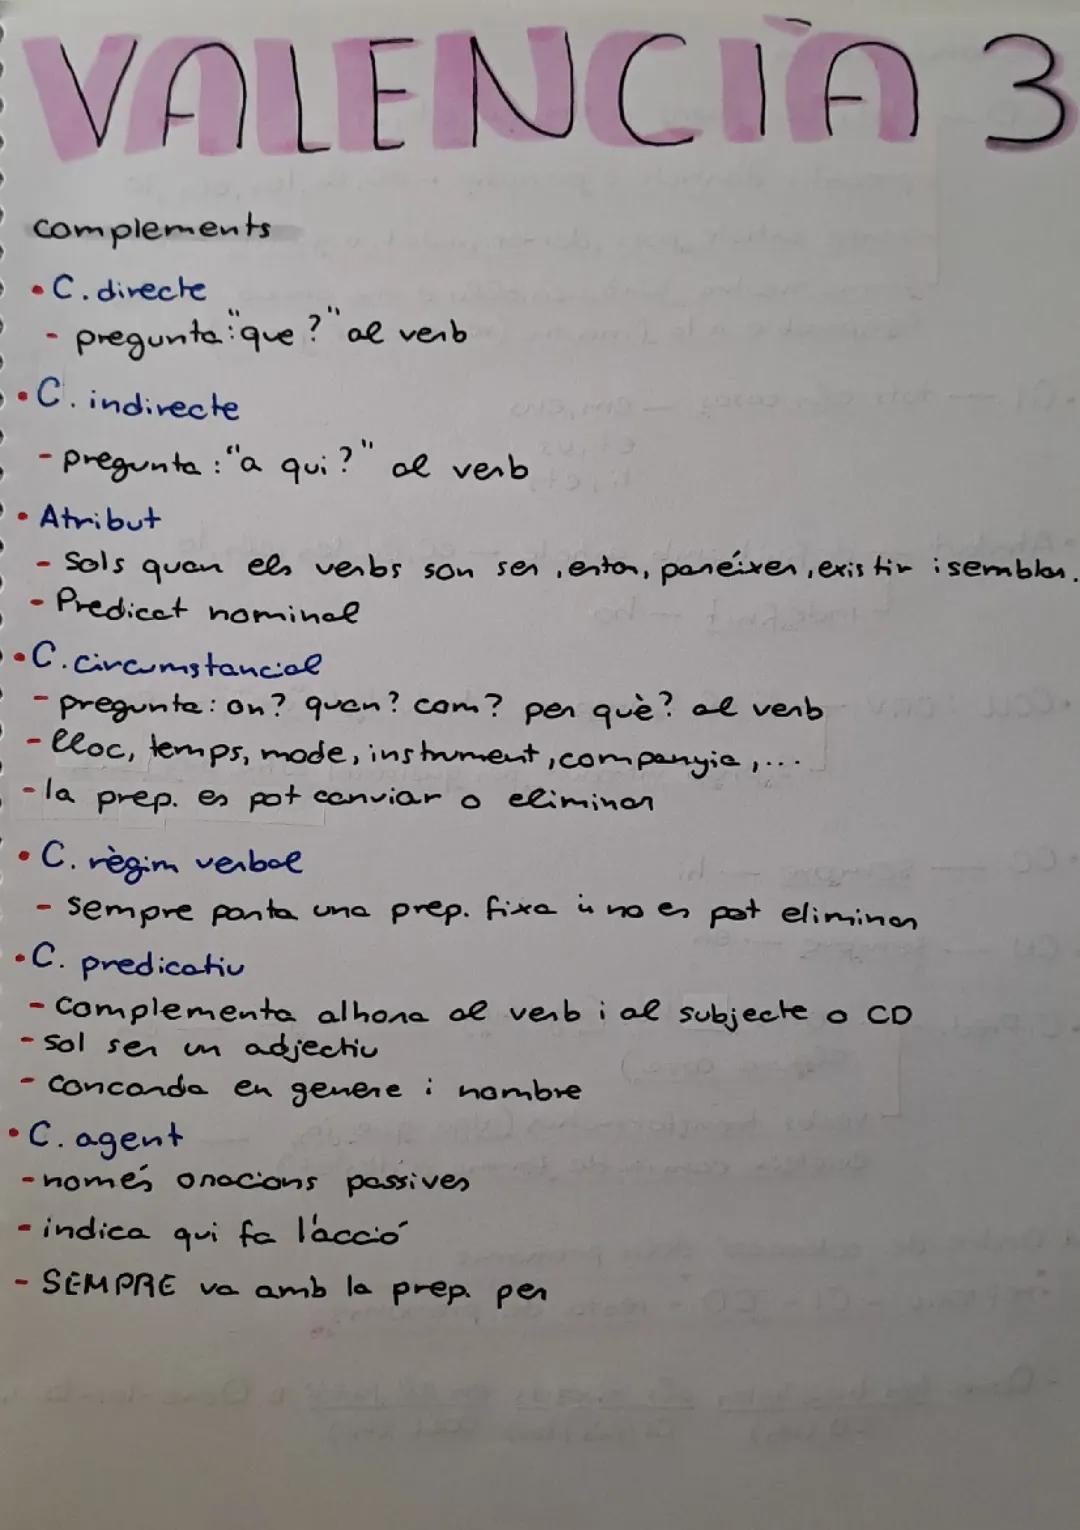 VALENCIÀ 3
complements
• C. directe
- pregunta: "que?" al verb
• C. indirecte
- pregunta: "a qui?" al verb
• Atribut
- Sols quan els verbs son ser, estar, paréixer, existir i semblar.
- Predicat nominal
• C. circumstancial
- pregunta: on? quan? com? per què? al verb
- lloc, temps, mode, instrument, companyia,...
- la prep. es pot canviar o eliminar
• C. règim verbal
- sempre porta una prep. fixa i no es pot eliminar
• C. predicatiu
- complementa alhora al verb i al subjecte o CD
- sol ser un adjectiu
- concorda en genere i nombre
• C. agent
- només oracions passives
- indica qui fa l'acció
- SEMPRE va amb la prep. per